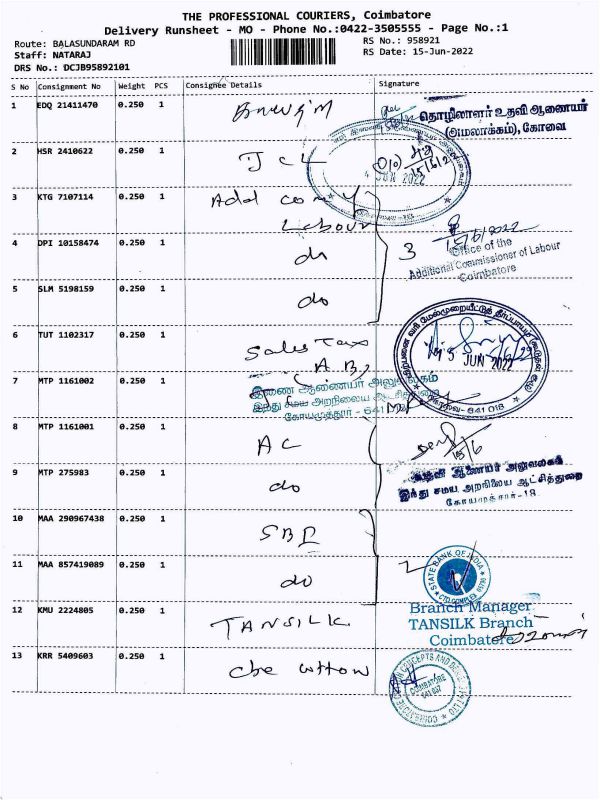 THE PROFESSIONAL COURIERS, Coimbatore
Delivery Runsheet - MO - Phone No.:0422-3505555 - Page No.:1
Route: BALASUNDARAM RD
RS No.: 958921
Staff: NATARAJ
RS Date: 15-Jun-2022
DRS No.: DCJB95892101
S No Consignment No Weight PCS Consignee Details Signature
1 EDQ 21411470 0.250 1
தொழிலாளர் உதவி ஆணையர்
(அமலாக்கம்), கோவை
2 HSR 2410622 0.250 1 JCL
3 KTG 7107114 0.250 1 Add
Labour
15/6/2022
4 DPI 10158474 0.250 1 do 3
Office of the
Additional Commissioner of Labour
Coimbatore
5 SLM 5198159 0.250 1 do
6 TUT 1102317 0.250 1 Sales Tax
JUN 2022
7 MTP 1161002 0.250 1
இணை ஆணையர் அலுவலகம்
இந்து சமய அறநிலைய ஆட்சித்துறை
கோயமுத்தூர் - 641 018
8 MTP 1161001 0.250 1 AC
15/6
9 MTP 275983 0.250 1 do
உதவி ஆணையர் அலுவலகம்
இந்து சமய அறநிலைய ஆட்சித்துறை
கோயமுத்தூர்-18.
10 MAA 290967438 0.250 1 SBI
11 MAA 857419089 0.250 1 do 2
STATE BANK OF INDIA
Branch Manager
TANSILK Branch
Coimbatore
12 KMU 2224805 0.250 1 TANSILK
13 KRR 5409603 0.250 1 cbe cotton
COIMBATORE